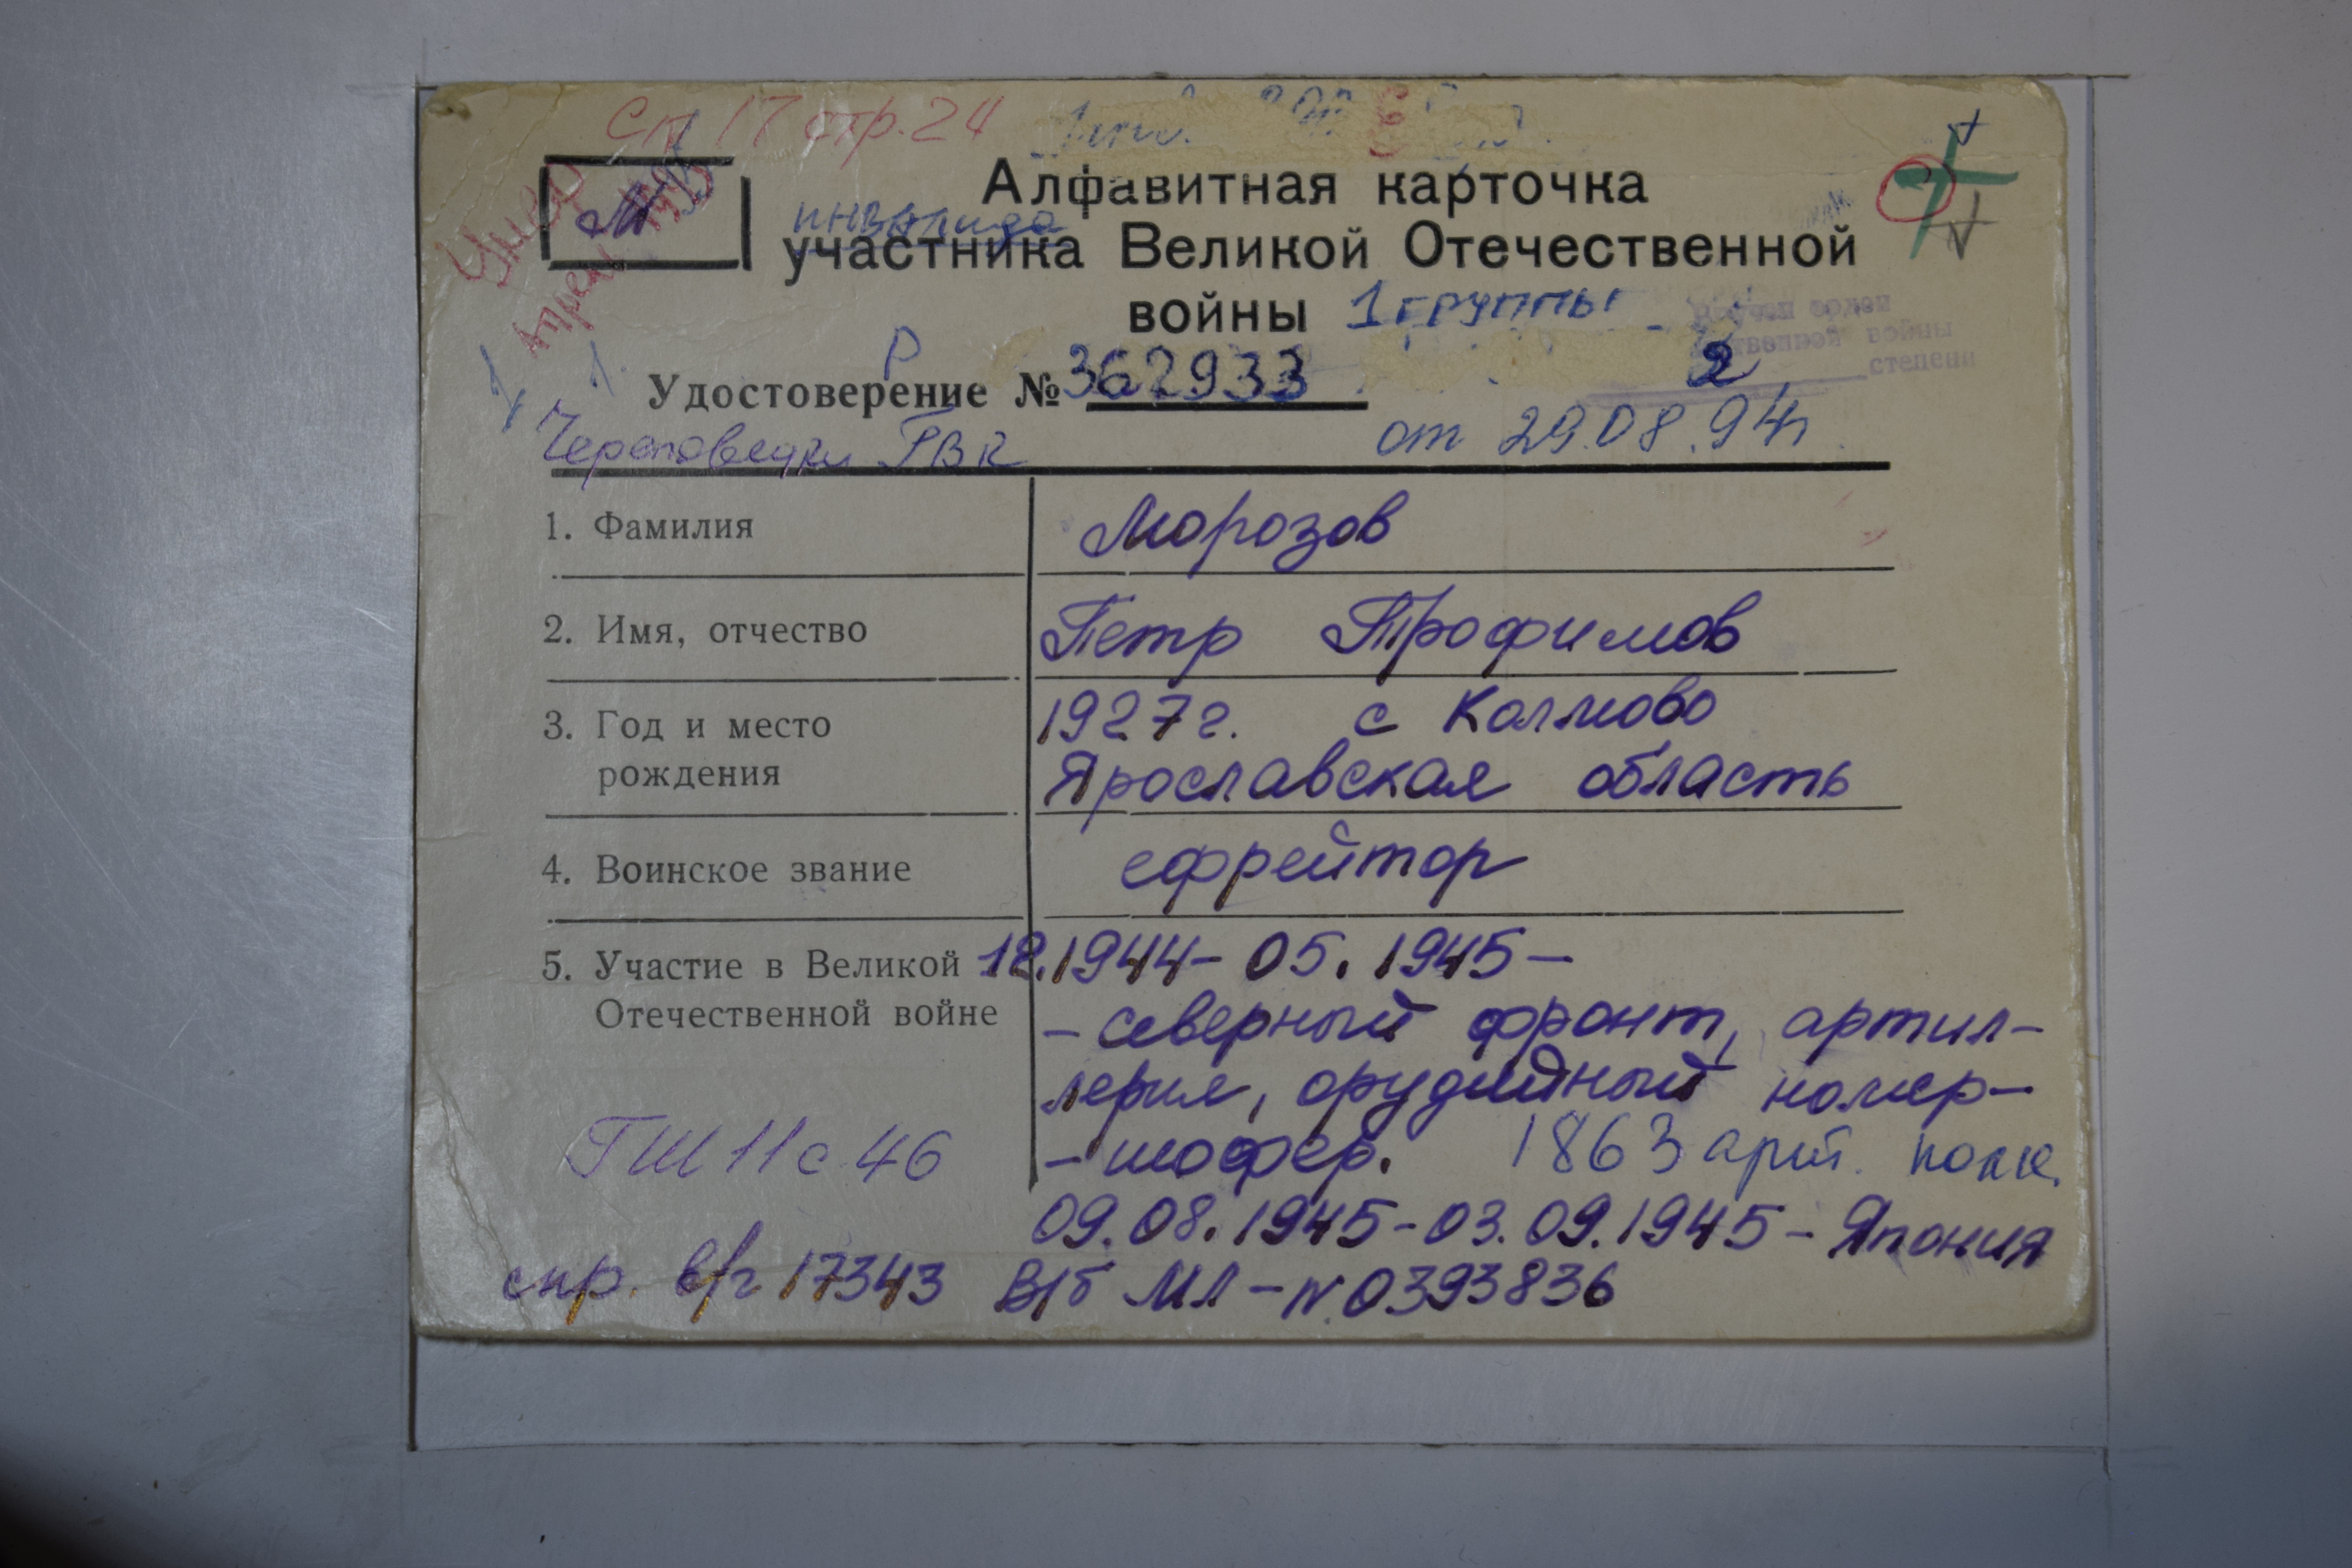 Сп 17 стр. 24
Умер
апрель 1995
М
Алфавитная карточка
инвалида
участника Великой Отечественной
войны 1 группы
степени
Р
Удостоверение № 362933 2
Череповецки ГВК от 29.08.94г
1. Фамилия Морозов
2. Имя, отчество Петр Трофимов
3. Год и место 1927г. с Колмово
рождения Ярославская область
4. Воинское звание ефрейтор
5. Участие в Великой 12.1944- 05.1945-
Отечественной войне -северный фронт, артил-
лерия, орудийный номер-
ГШ 11 с 46 -шофер. 1863 арт. полк.
09.08.1945-03.09.1945-Япония
спр. в/ч 17343 В/б МЛ-N.0393836